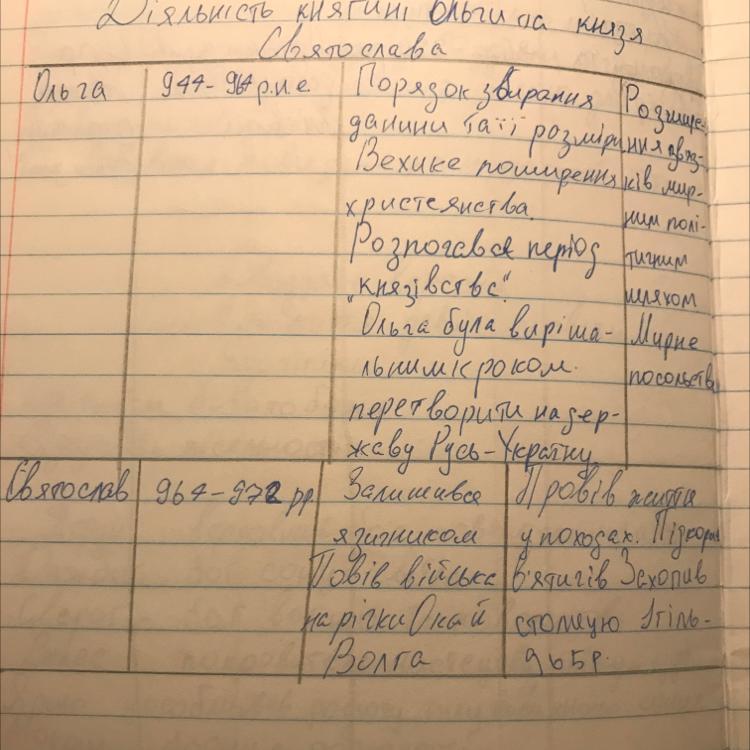 Діяльність княгині Ольги та князя
Святослава
Ольга
944-964р.н.е.
Порядок збирання
данини та її розміри
Велике поширення
христеянства
Розпочався період
„князівства"
Ольга була виріша-
льним кроком.
перетворити на дер-
жаву Русь-Україну
Розшире-
ння звяз-
ків мир-
ним полі-
тичним
шляхом
Мирне
посольства
Святослав
964-972 рр.
Залишився
язичником
Повів війська
на річки Ока й
Волга
Провів життя
у походах. Підкорив
в'ятичів Захопив
столицю Ітіль-
965р.